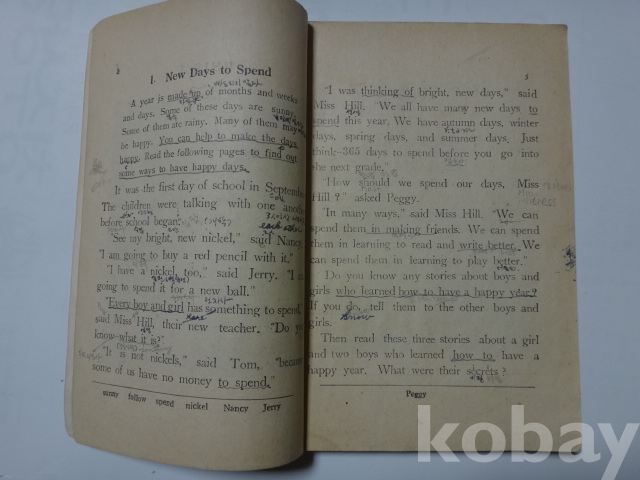 2
1. New Days to Spend
A year is made up of months and weeks
and days. Some of these days are sunny.
Some of them are rainy. Many of them may
be happy. You can help to make the days
happy. Read the following pages to find out
some ways to have happy days.
It was the first day of school in September.
The children were talking with one another
before school began.
"See my bright, new nickel," said Nancy.
"I am going to buy a red pencil with it."
"I have a nickel, too," said Jerry. "I am
going to spend it for a new ball."
"Every boy and girl has something to spend,"
said Miss Hill, their new teacher. "Do you
know what it is?"
"It is not nickels," said Tom, "because
some of us have no money to spend."
sunny follow spend nickel Nancy Jerry
3
"I was thinking of bright, new days," said
Miss Hill. "We all have many new days to
spend this year. We have autumn days, winter
days, spring days, and summer days. Just
think—365 days to spend before you go into
the next grade."
"How should we spend our days, Miss
Hill?" asked Peggy.
"In many ways," said Miss Hill. "We can
spend them in making friends. We can spend
them in learning to read and write better. We
can spend them in learning to play better."
Do you know any stories about boys and
girls who learned how to have a happy year?
If you do, tell them to the other boys and
girls.
know
Then read these three stories about a girl
and two boys who learned how to have a
happy year. What were their secrets?
Peggy
kobay